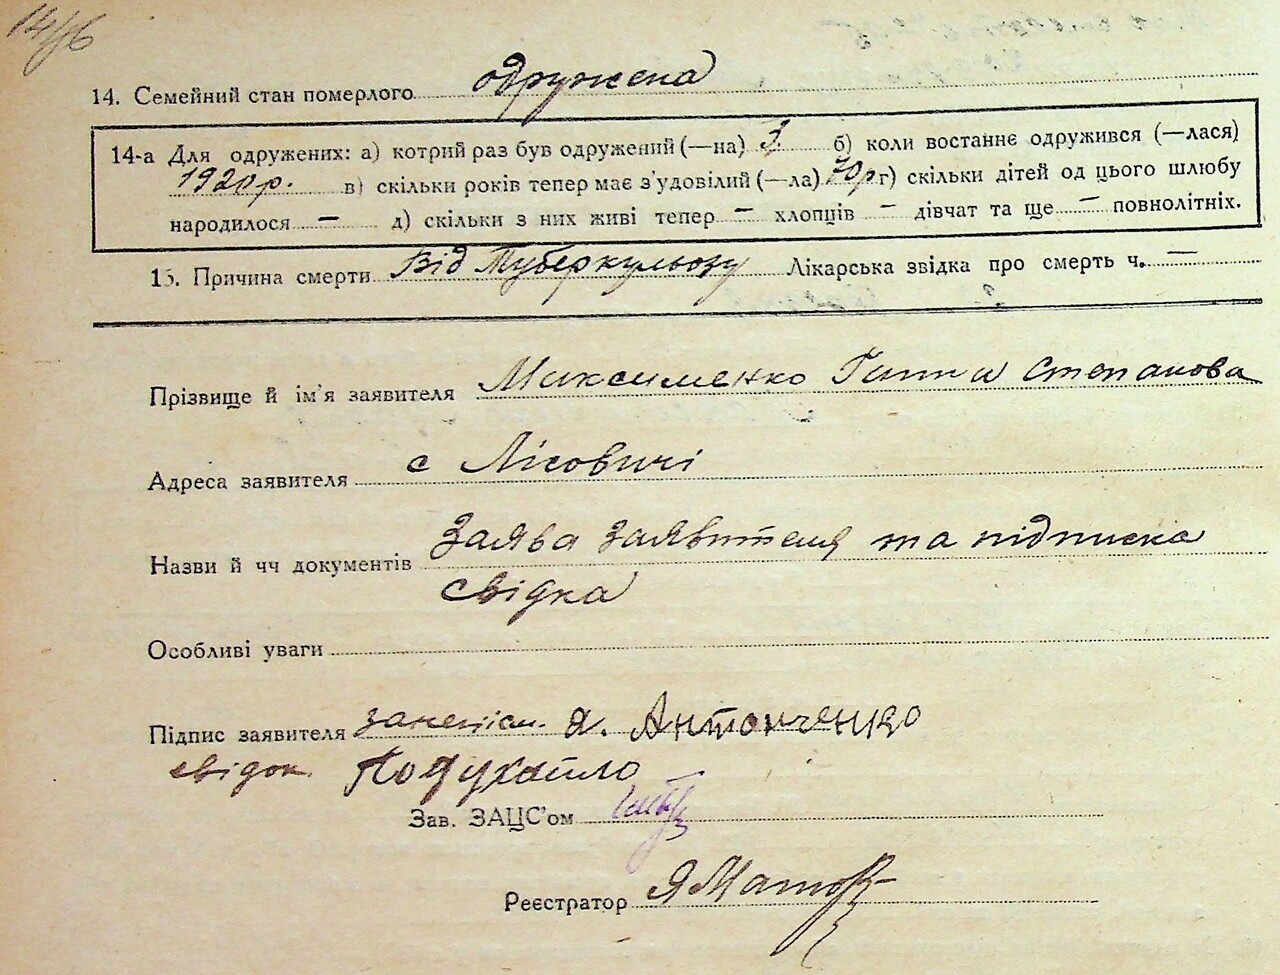 14/6
14. Семейний стан померлого одружена
14-а Для одружених: а) котрий раз був одружений (—на) 3. б) коли востаннє одружився (—лася)
1920 р. в) скільки років тепер має з'удовілий (—ла) 70 р. г) скільки дітей од цього шлюбу
народилося — д) скільки з них живі тепер — хлопців — дівчат та ще — повнолітніх.
15. Причина смерти Від Туберкульозу Лікарська звідка про смерть ч. —
Прізвище й ім'я заявителя Максименко Ганна Степанова
Адреса заявителя с Лісовичі
Назви й чч документів Заява заявителя та підписка
свідка
Особливі уваги
Підпис заявителя Я. Антонченко
свідок
Зав. ЗАЦС'ом
Реєстратор